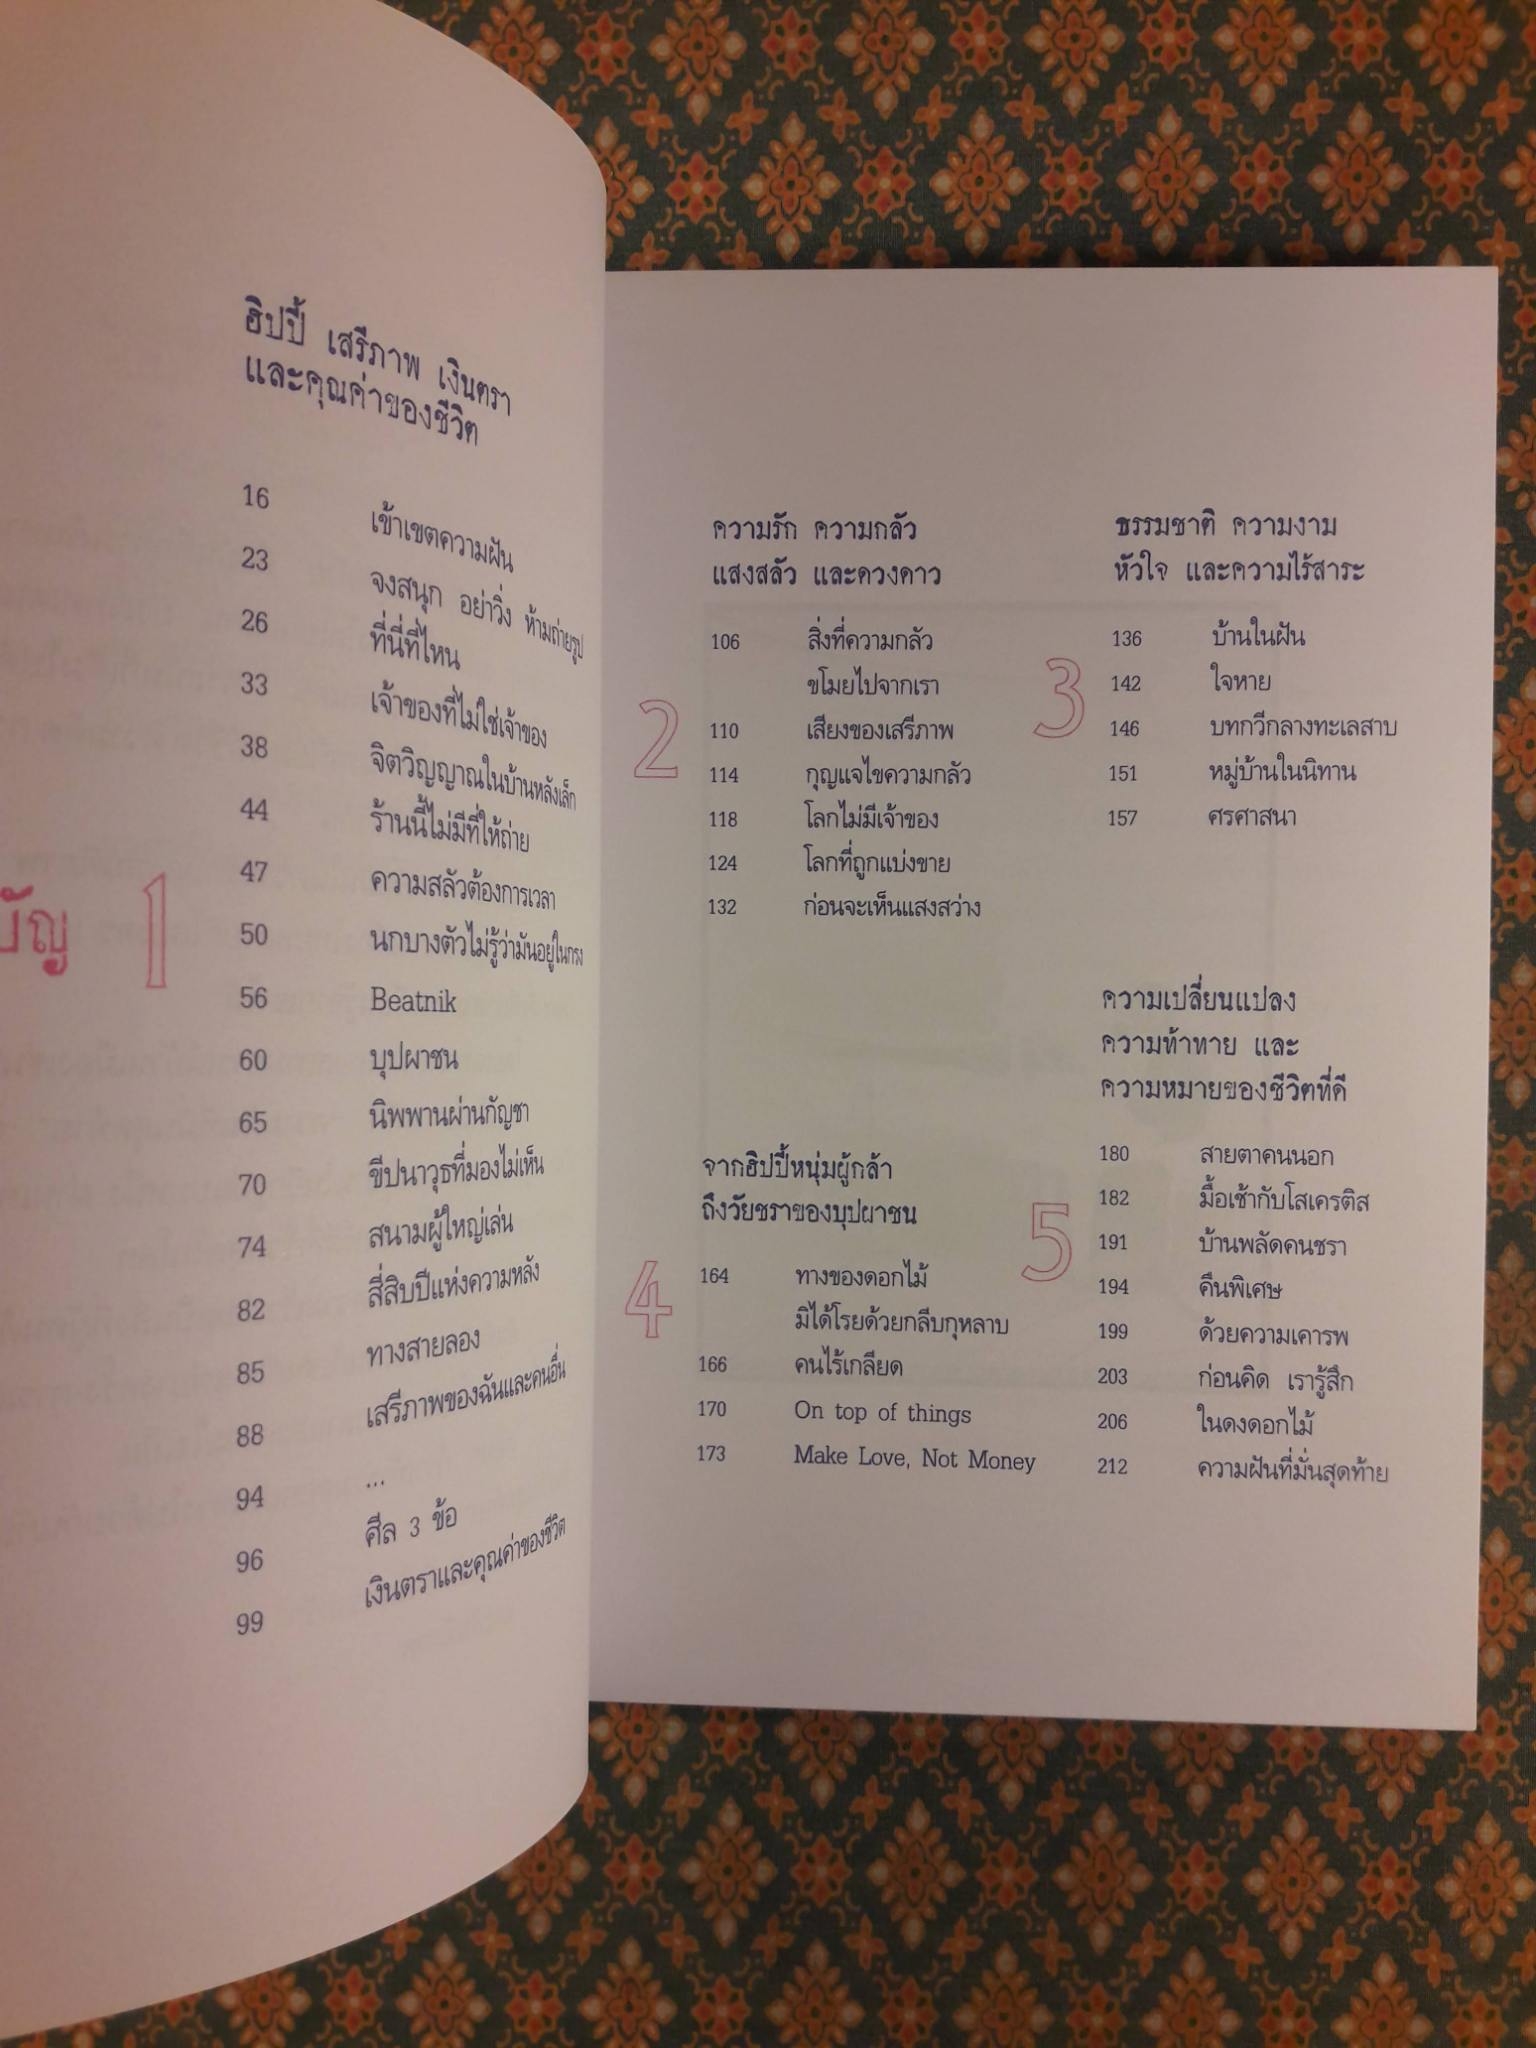 บัญ 1
ฮิปปี้ เสรีภาพ เงินตรา
และคุณค่าของชีวิต
16 เข้าเขตความฝัน
23 จงสนุก อย่าวิ่ง ห้ามถ่ายรูป
26 ที่นี่ที่ไหน
33 เจ้าของที่ไม่ใช่เจ้าของ
38 จิตวิญญาณในบ้านหลังเล็ก
44 ร้านนี้ไม่มีที่ให้ถ่าย
47 ความสลัวต้องการเวลา
50 นกบางตัวไม่รู้ว่ามันอยู่ในกรง
56 Beatnik
60 บุปผาชน
65 นิพพานผ่านกัญชา
70 ขีปนาวุธที่มองไม่เห็น
74 สนามผู้ใหญ่เล่น
82 สี่สิบปีแห่งความหลัง
85 ทางสายลอง
88 เสรีภาพของฉันและคนอื่น
94 ...
96 ศีล 3 ข้อ
99 เงินตราและคุณค่าของชีวิต
2
ความรัก ความกลัว
แสงสลัว และดวงดาว
106 สิ่งที่ความกลัว
ขโมยไปจากเรา
110 เสียงของเสรีภาพ
114 กุญแจไขความกลัว
118 โลกไม่มีเจ้าของ
124 โลกที่ถูกแบ่งขาย
132 ก่อนจะเห็นแสงสว่าง
3
ธรรมชาติ ความงาม
หัวใจ และความไร้สาระ
136 บ้านในฝัน
142 ใจหาย
146 บทกวีกลางทะเลสาบ
151 หมู่บ้านในนิทาน
157 ศรศาสนา
4
จากฮิปปี้หนุ่มผู้กล้า
ถึงวัยชราของบุปผาชน
164 ทางของดอกไม้
มิได้โรยด้วยกลีบกุหลาบ
166 คนไร้เกลียด
170 On top of things
173 Make Love, Not Money
5
ความเปลี่ยนแปลง
ความท้าทาย และ
ความหมายของชีวิตที่ดี
180 สายตาคนนอก
182 มื้อเช้ากับโสเครติส
191 บ้านพลัดคนชรา
194 คืนพิเศษ
199 ด้วยความเคารพ
203 ก่อนคิด เรารู้สึก
206 ในดงดอกไม้
212 ความฝันที่มั่นสุดท้าย